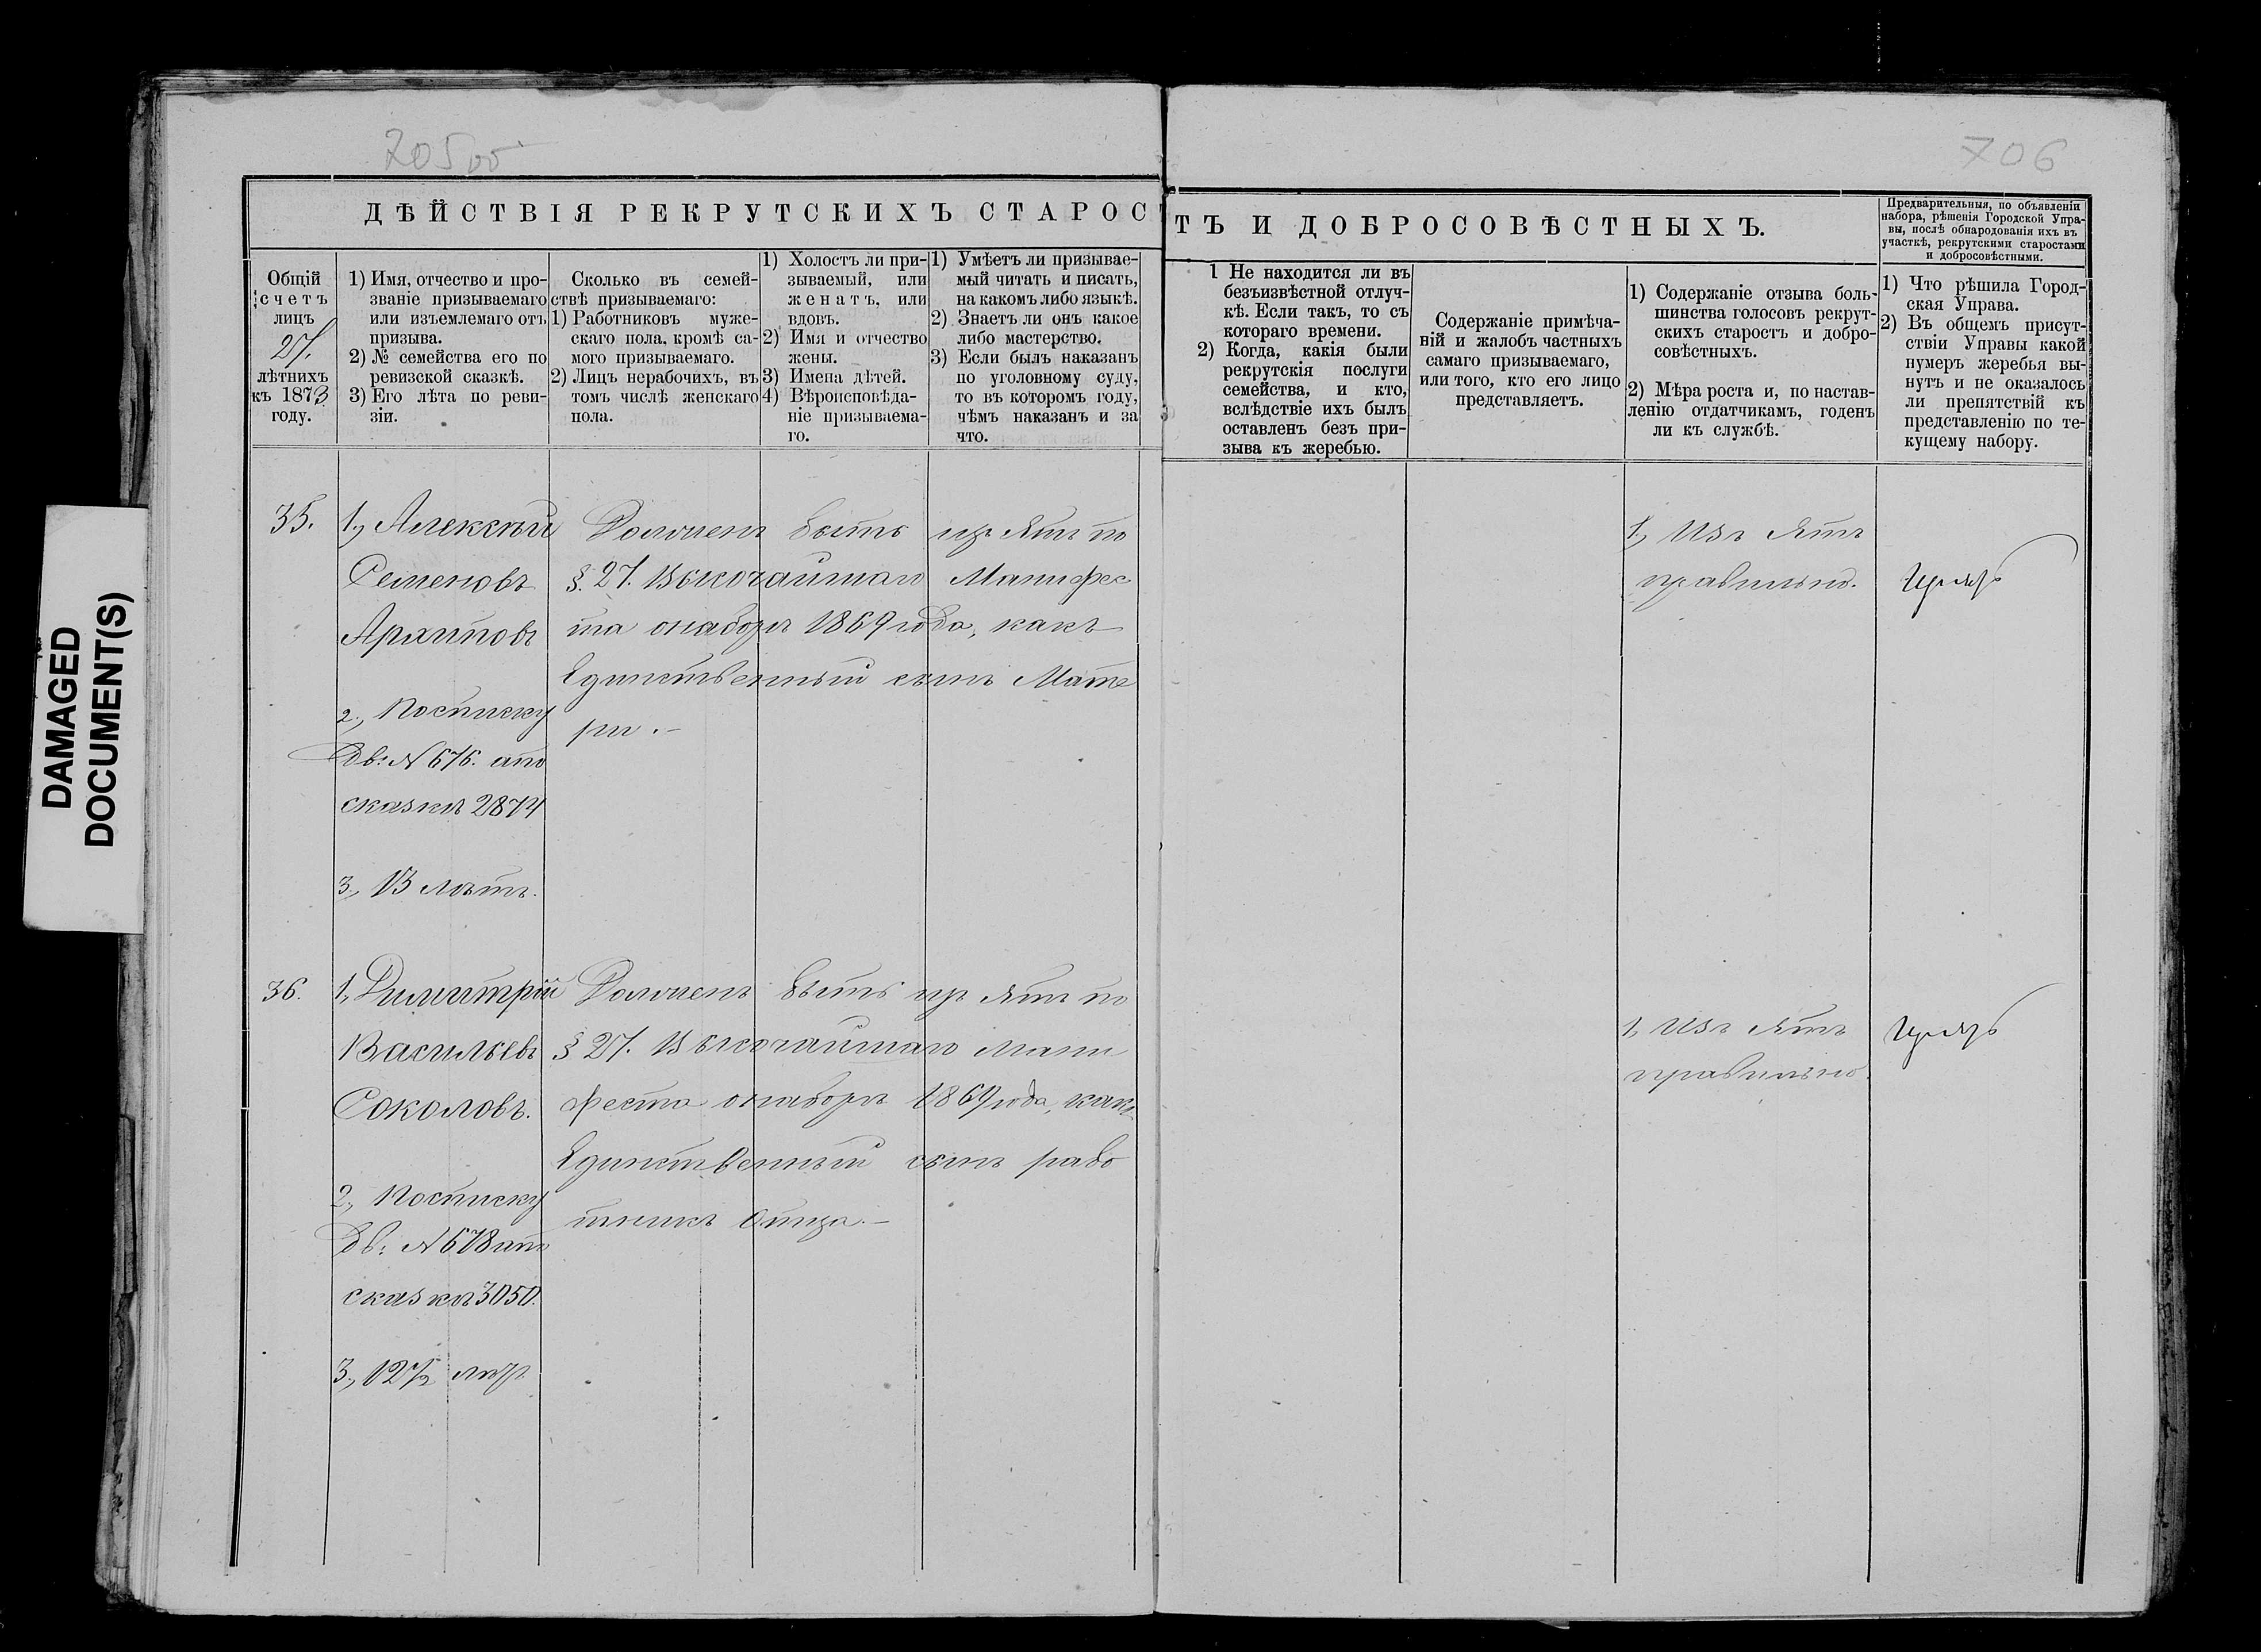 705 об
706
ДѢЙСТВІЯ РЕКРУТСКИХЪ СТАРОС
ТЪ И ДОБРОСОВѢСТНЫХЪ.
Предварительныя, по объявленіи
набора, рѣшенія Городской Упра-
вы, послѣ обнародованія ихъ въ
участкѣ, рекрутскими старостами
и добросовѣстными.
Общій
счетъ
лицъ
27.
лѣтнихъ
къ 1873
году.
1) Имя, отчество и про-
званіе призываемаго
или изъемлемаго отъ
призыва.
2) № семейства его по
ревизской сказкѣ.
3) Его лѣта по реви-
зіи.
Сколько въ семей-
ствѣ призываемаго:
1) Работниковъ муже-
скаго пола, кромѣ са-
мого призываемаго.
2) Лицъ нерабочихъ, въ
томъ числѣ женскаго
пола.
1) Холостъ ли при-
зываемый, или
женатъ, или
вдовъ.
2) Имя и отчество
жены.
3) Имена дѣтей.
4) Вѣроисповѣда-
ніе призываема-
го.
1) Умѣетъ ли призывае-
мый читать и писать,
на какомъ либо языкѣ.
2) Знаетъ ли онъ какое
либо мастерство.
3) Если былъ наказанъ
по уголовному суду,
то въ которомъ году,
чѣмъ наказанъ и за
что.
1 Не находится ли въ
безъизвѣстной отлуч-
кѣ. Если такъ, то съ
котораго времени.
2) Когда, какія были
рекрутскія послуги
семейства, и кто,
вслѣдствіе ихъ былъ
оставленъ безъ при-
зыва къ жеребью.
Содержаніе примѣча-
ній и жалобъ частныхъ
самаго призываемаго,
или того, кто его лицо
представляетъ.
1) Содержаніе отзыва боль-
шинства голосовъ рекрут-
скихъ старостъ и добро-
совѣстныхъ.
2) Мѣра роста и, по настав-
ленію отдатчикамъ, годенъ
ли къ службѣ.
1) Что рѣшила Город-
ская Управа.
2) Въ общемъ присут-
ствіи Управы какой
нумеръ жеребья вы-
нутъ и не оказалось
ли препятствій къ
представленію по те-
кущему набору.
35.
1., Алексѣй
Семеновъ
Архиповъ
2., По списку
Дв: № 676. а по
сказкѣ 2874
3., 13 лѣтъ.
Долженъ быть изъятъ по
§. 27. Высочайшаго Манифес
та о наборѣ 1869 года, какъ
Единственный сынъ Мате
ри.-
1., Изъятъ
правильно.
36.
1., Димитрій
Васильевъ
Соколовъ.
2., По списку
Дв: № 678 а по
сказкѣ 3050.
3., 12 1/2 лѣтъ
Долженъ быть изъятъ по
§ 27. Высочайшаго Мани
феста о наборѣ 1869 года, какъ
Единственный сынъ рабо
тникъ Отца.-
1, Изъятъ
правильно.
DAMAGED
DOCUMENT(S)